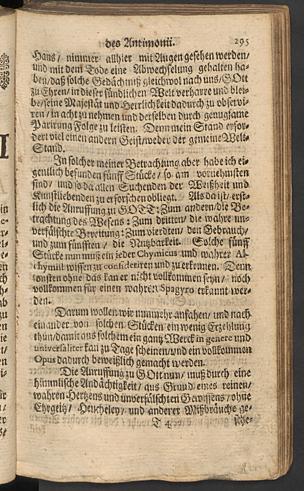 des Antimonii. 295
Hans/ nimmer allhier mit Augen gesehen werden/
und mit dem Tode eine Abwechselung gehalten ha-
ben/ daß solche Gedächtnuß gleichwol nach uns/ GOtt
zu Ehren/ in dieser sündlichen Welt verharre und blei-
be/ seine Majestät und Herrlichkeit dadurch zu observi-
ren/ in acht zu nehmen und derselben durch genugsame
Parirung Folge zu leisten. Denn mein Stand erfor-
dert viel einen andern Geist/ weder der gemeine Welt-
Stand.
In solcher meiner Betrachtung aber habe ich ei-
gentlich befunden fünff Stücke/ so am vornehmsten
sind/ und so da allen Suchenden der Weißheit und
Kunstliebenden zu erforschen obliegt. Als da ist/ erst-
lich die Anruffung zu GOTT: Zum andern/ die Be-
trachtung des Wesens: Zum dritten/ die wahre un-
verfälschte Bereitung: Zum vierdten/ den Gebrauch/
und zum fünfften/ die Nutzbarkeit. Solche fünff
Stücke nun muß ein jeder Chymicus und wahrer Al-
chymist wissen zu consideriren und zu erkennen. Denn
sonsten ohne das kan er nicht vollkommen seyn/ noch
vollkommen für einen wahren Spagyro erkannt wer-
den.
Darum wollen wir nunmehr anfahen/ und nach
einander von solchen Stücken ein wenig Erzehlung
thun/ damit aus solchem ein gantz Werck in genere und
universaliter kan zu Tage scheinen/ und ein vollkommen
Opus dadurch beweißlich gemacht werden.
Die Anruffung zu GOtt nun/ muß durch eine
himmlische Andächtigkeit/ aus Grund eines reinen/
wahren Hertzens und unverfälschten Gewissens/ ohne
Ehrgeitz/ Heucheley/ und anderer Mißbräuche ge-
T 4 sche-